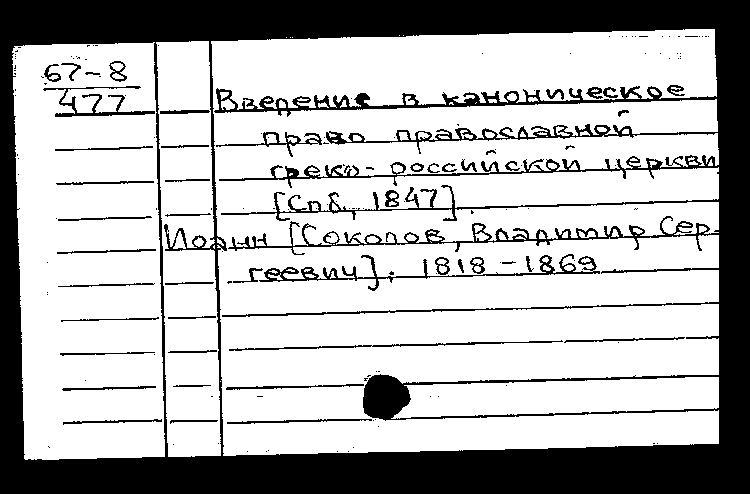 67-8
477
Введение в каноническое
право православной
греко-российской церкви
[Спб, 1847]
Иоанн [Соколов, Владимир Сер-
геевич]. 1818-1869